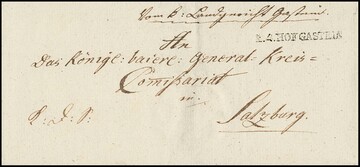 Vom k: Landgericht Gastein.
R.4.HOFGASTEIN
An
Das Königl: baier: General-Kreis=
Comissariat
in
R: D: S:
Salzburg.